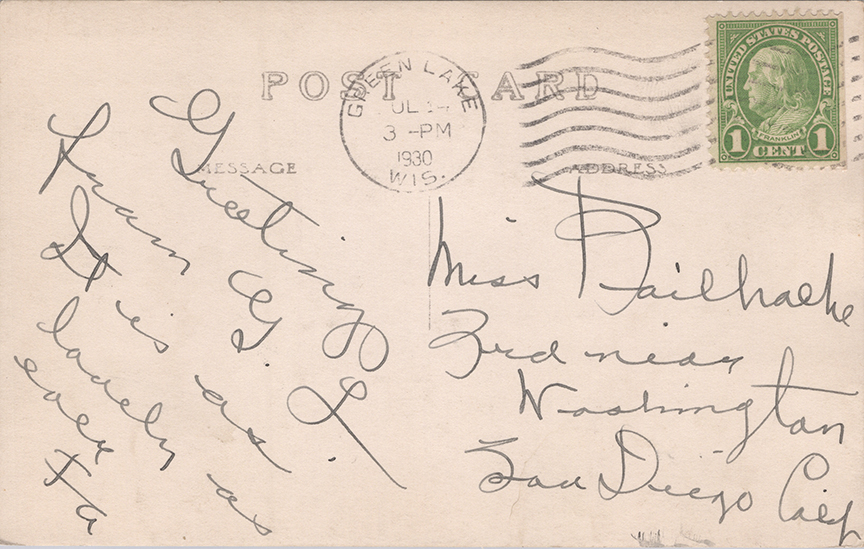 POST CARD
GREEN LAKE
JUL 14
3 -PM
1930
WIS.
UNITED STATES POSTAGE
FRANKLIN
1 CENT 1
MESSAGE
ADDRESS
Greeting
from G. L.
It is as
lovely as
ever
Miss Bailhache
3rd near
Washington
San Diego Calif